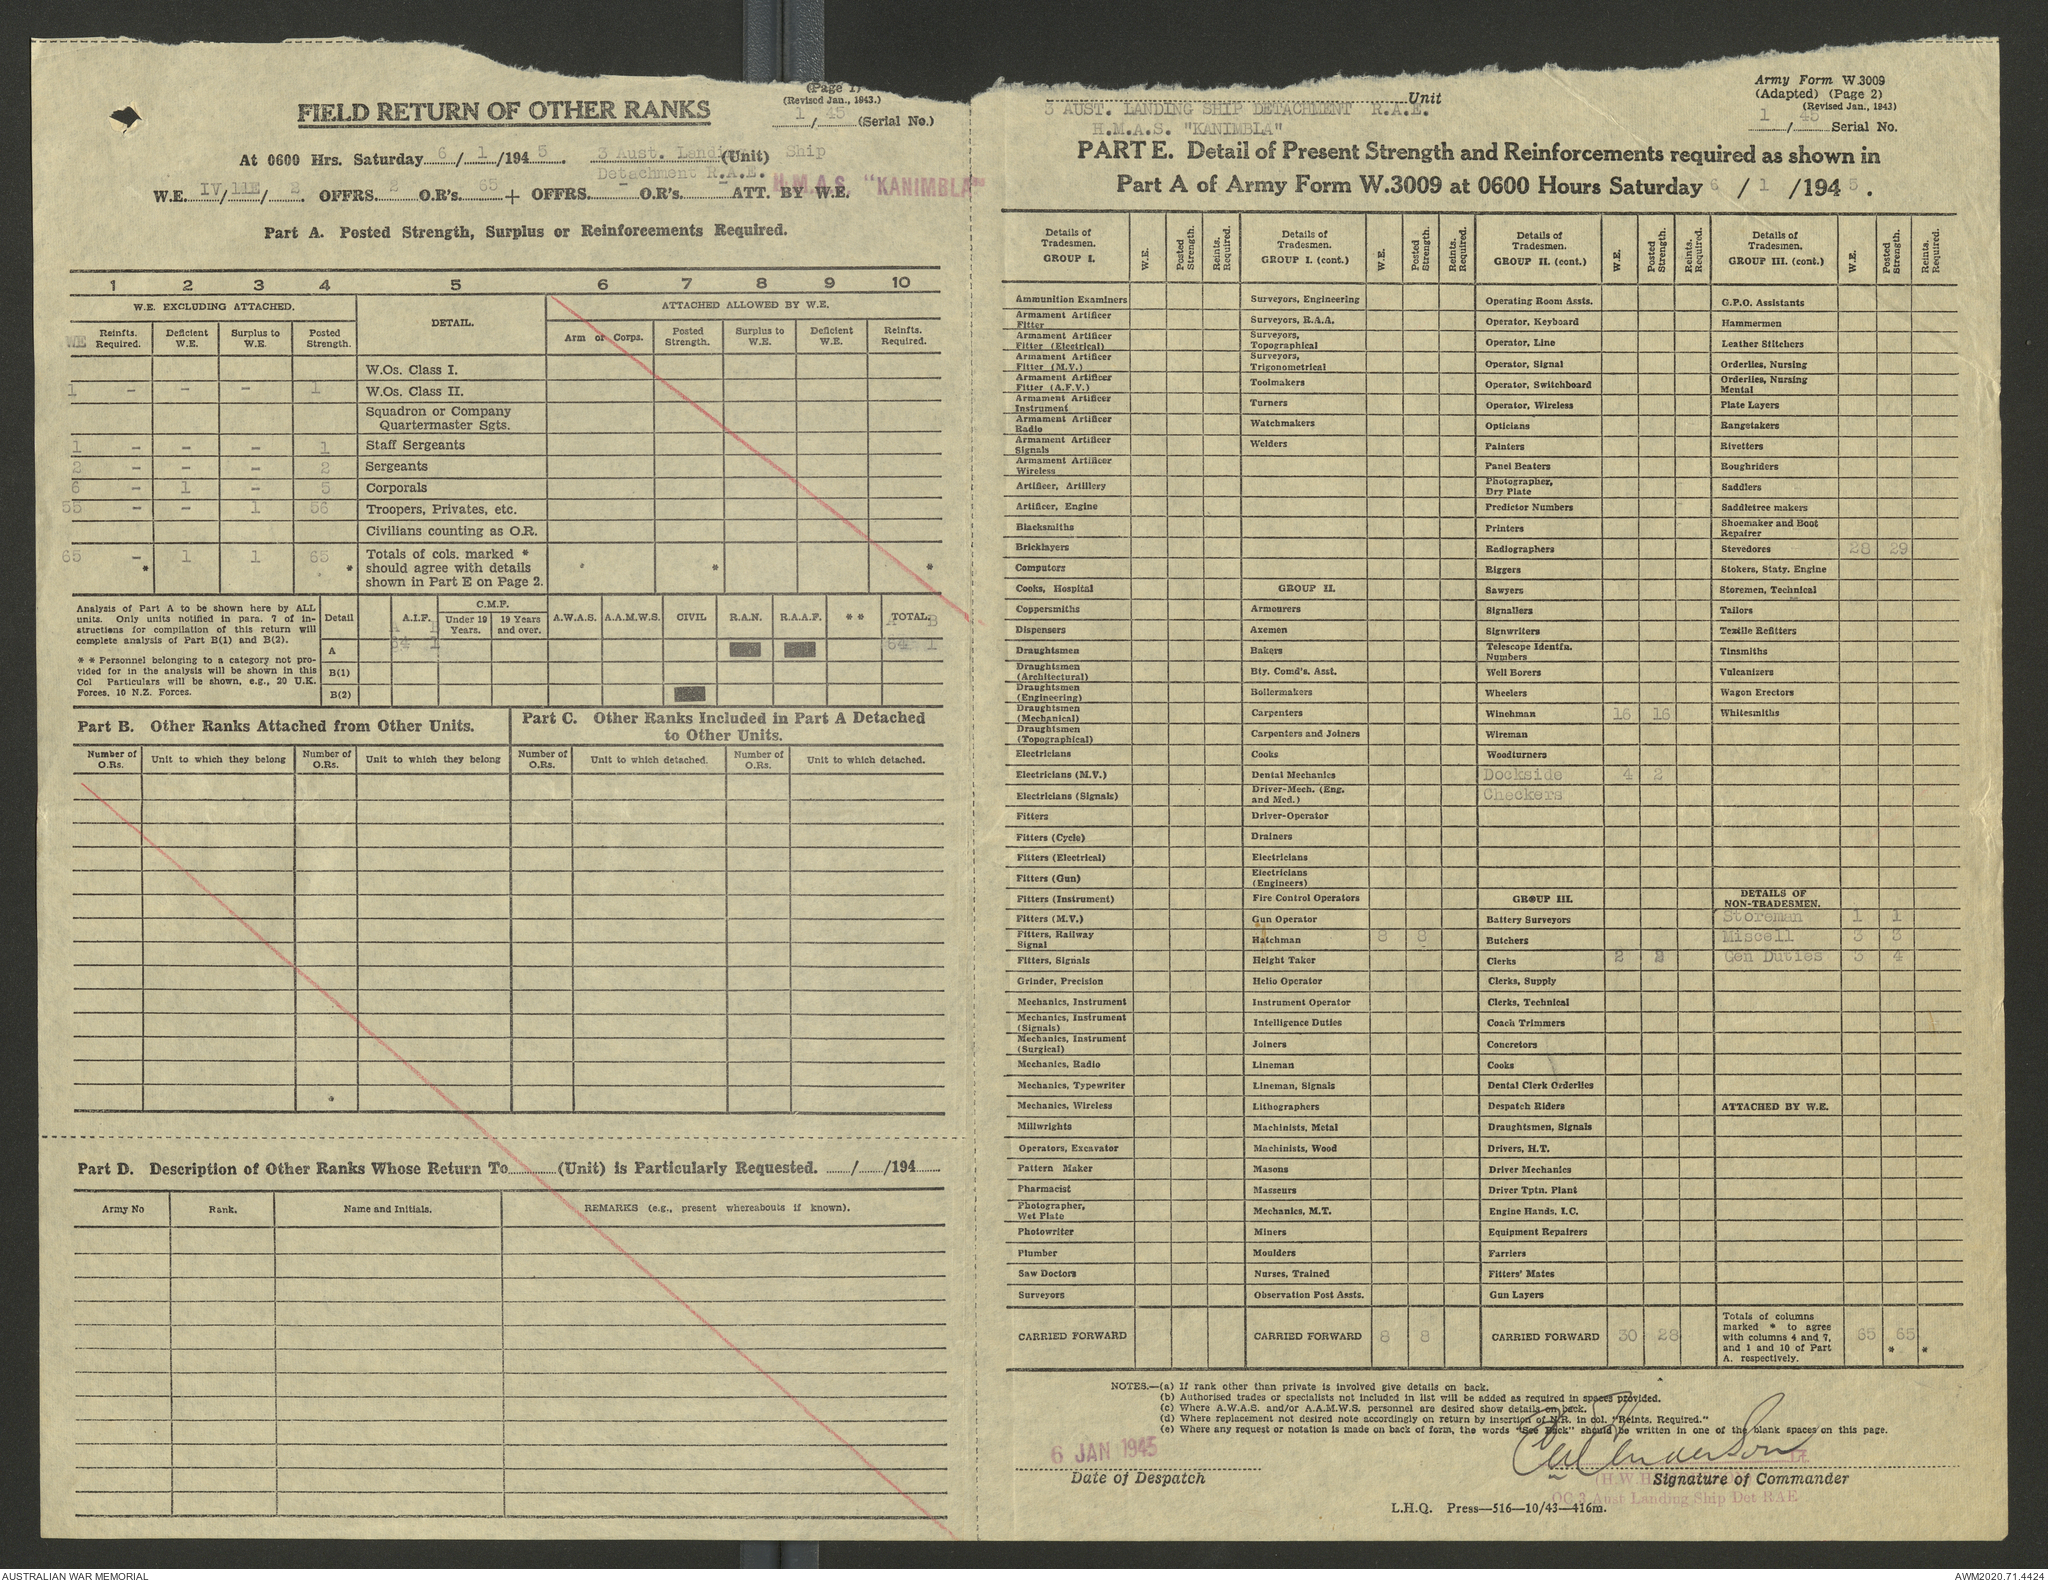 (Page 1)
FIELD RETURN OF OTHER RANKS
(Revised Jan., 1943.)
1 / 45 (Serial No.)
At 0600 Hrs. Saturday 6 / 1 /194 5 . 3 Aust. Landing (Unit) Ship
Detachment R.A.E.
W.E. IV/ 11E / 2 . OFFRS. 2 O.R's. 65 + OFFRS. - O.R's. - ATT. BY W.E. H.M.A.S. "KANIMBLA"
Part A. Posted Strength, Surplus or Reinforcements Required.
1 2 3 4 5 6 7 8 9 10
W.E. EXCLUDING ATTACHED. DETAIL. ATTACHED ALLOWED BY W.E.
WE Reinfts. Required. Deficient W.E. Surplus to W.E. Posted Strength. Arm or Corps. Posted Strength. Surplus to W.E. Deficient W.E. Reinfts. Required.
W.Os. Class I.
1 - - - 1 W.Os. Class II.
Squadron or Company
Quartermaster Sgts.
1 - - - 1 Staff Sergeants
2 - - - 2 Sergeants
6 - 1 - 5 Corporals
55 - - 1 56 Troopers, Privates, etc.
Civilians counting as O.R.
65 - 1 1 65 Totals of cols. marked *
* * should agree with details * * *
shown in Part E on Page 2.
Analysis of Part A to be shown here by ALL
units. Only units notified in para. 7 of in-
structions for compilation of this return will
complete analysis of Part B(1) and B(2).
* * Personnel belonging to a category not pro-
vided for in the analysis will be shown in this
Col Particulars will be shown, e.g., 20 U.K.
Forces, 10 N.Z. Forces.
Detail A.I.F. C.M.F. Under 19 Years. 19 Years and over. A.W.A.S. A.A.M.W.S. CIVIL R.A.N. R.A.A.F. * * TOTAL.
A B A B
A 64 1 64 1
B(1)
B(2)
Part B. Other Ranks Attached from Other Units.
Part C. Other Ranks Included in Part A Detached
to Other Units.
Number of O.Rs. Unit to which they belong Number of O.Rs. Unit to which they belong Number of O.Rs. Unit to which detached. Number of O.Rs. Unit to which detached.
Part D. Description of Other Ranks Whose Return To (Unit) is Particularly Requested. / /194
Army No Rank. Name and Initials. REMARKS (e.g., present whereabouts if known).
3 AUST. LANDING SHIP DETACHMENT R.A.E. Unit
H.M.A.S. "KANIMBLA"
Army Form W.3009
(Adapted) (Page 2)
(Revised Jan., 1943)
1 / 45 Serial No.
PART E. Detail of Present Strength and Reinforcements required as shown in
Part A of Army Form W.3009 at 0600 Hours Saturday 6 / 1 /194 5 .
Details of Tradesmen. GROUP I. W.E. Posted Strength. Reints. Required.
Ammunition Examiners
Armament Artificer Fitter
Armament Artificer Fitter (Electrical)
Armament Artificer Fitter (M.V.)
Armament Artificer Fitter (A.F.V.)
Armament Artificer Instrument
Armament Artificer Radio
Armament Artificer Signals
Armament Artificer Wireless
Artificer, Artillery
Artificer, Engine
Blacksmiths
Bricklayers
Computors
Cooks, Hospital
Coppersmiths
Dispensers
Draughtsmen
Draughtsmen (Architectural)
Draughtsmen (Engineering)
Draughtsmen (Mechanical)
Draughtsmen (Topographical)
Electricians
Electricians (M.V.)
Electricians (Signals)
Fitters
Fitters (Cycle)
Fitters (Electrical)
Fitters (Gun)
Fitters (Instrument)
Fitters (M.V.)
Fitters, Railway Signal
Fitters, Signals
Grinder, Precision
Mechanics, Instrument
Mechanics, Instrument (Signals)
Mechanics, Instrument (Surgical)
Mechanics, Radio
Mechanics, Typewriter
Mechanics, Wireless
Millwrights
Operators, Excavator
Pattern Maker
Pharmacist
Photographer, Wet Plate
Photowriter
Plumber
Saw Doctors
Surveyors
CARRIED FORWARD
Details of Tradesmen. GROUP I. (cont.) W.E. Posted Strength. Reints. Required.
Surveyors, Engineering
Surveyors, R.A.A.
Surveyors, Topographical
Surveyors, Trigonometrical
Toolmakers
Turners
Watchmakers
Welders
GROUP II.
Armourers
Axemen
Bakers
Bty. Comd's. Asst.
Boilermakers
Carpenters
Carpenters and Joiners
Cooks
Dental Mechanics
Driver-Mech. (Eng. and Med.)
Driver-Operator
Drainers
Electricians
Electricians (Engineers)
Fire Control Operators
Gun Operator
Hatchman 8 8
Height Taker
Helio Operator
Instrument Operator
Intelligence Duties
Joiners
Lineman
Lineman, Signals
Lithographers
Machinists, Metal
Machinists, Wood
Masons
Masseurs
Mechanics, M.T.
Miners
Moulders
Nurses, Trained
Observation Post Assts.
CARRIED FORWARD 8 8
Details of Tradesmen. GROUP II. (cont.) W.E. Posted Strength. Reints. Required.
Operating Room Assts.
Operator, Keyboard
Operator, Line
Operator, Signal
Operator, Switchboard
Operator, Wireless
Opticians
Painters
Panel Beaters
Photographer, Dry Plate
Predictor Numbers
Printers
Radiographers
Riggers
Sawyers
Signallers
Signwriters
Telescope Identfn. Numbers
Well Borers
Wheelers
Winchman 16 16
Wireman
Woodturners
Dockside 4 2
Checkers
GROUP III.
Battery Surveyors
Butchers
Clerks 2 2
Clerks, Supply
Clerks, Technical
Coach Trimmers
Concretors
Cooks
Dental Clerk Orderlies
Despatch Riders
Draughtsmen, Signals
Drivers, H.T.
Driver Mechanics
Driver Tptn. Plant
Engine Hands, I.C.
Equipment Repairers
Farriers
Fitters' Mates
Gun Layers
CARRIED FORWARD 30 28
Details of Tradesmen. GROUP III. (cont.) W.E. Posted Strength. Reints. Required.
G.P.O. Assistants
Hammermen
Leather Stitchers
Orderlies, Nursing
Orderlies, Nursing Mental
Plate Layers
Rangetakers
Rivetters
Roughriders
Saddlers
Saddletree makers
Shoemaker and Boot Repairer
Stevedores 28 29
Stokers, Staty. Engine
Storemen, Technical
Tailors
Textile Refitters
Tinsmiths
Vulcanizers
Wagon Erectors
Whitesmiths
DETAILS OF
NON-TRADESMEN.
Storeman 1 1
Miscell 3 3
Gen Duties 3 4
ATTACHED BY W.E.
Totals of columns
marked * to agree
with columns 4 and 7, 65 65
and 1 and 10 of Part * *
A, respectively.
NOTES.—(a) If rank other than private is involved give details on back.
(b) Authorised trades or specialists not included in list will be added as required in spaces provided.
(c) Where A.W.A.S. and/or A.A.M.W.S. personnel are desired show details on back.
(d) Where replacement not desired note accordingly on return by insertion of N.R. in col. "Reints. Required."
(e) Where any request or notation is made on back of form, the words "See Back" should be written in one of the blank spaces on this page.
6 JAN 1945
Date of Despatch
Lt
Signature of Commander
OC 3 Aust Landing Ship Det RAE
L.H.Q. Press—516—10/43—416m.
AUSTRALIAN WAR MEMORIAL
AWM2020.71.4424